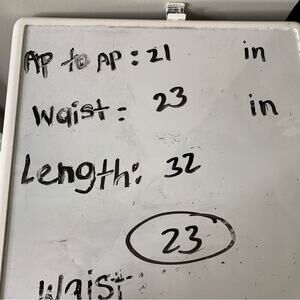 AP to AP: 21 in
Waist: 23 in
Length: 32
23
Waist